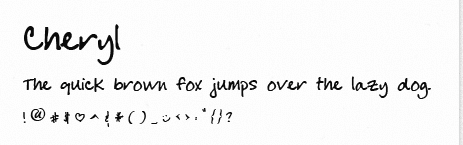 Cheryl
The quick brown fox jumps over the lazy dog.
!@#$♡^&*()_☺<>:"{}?